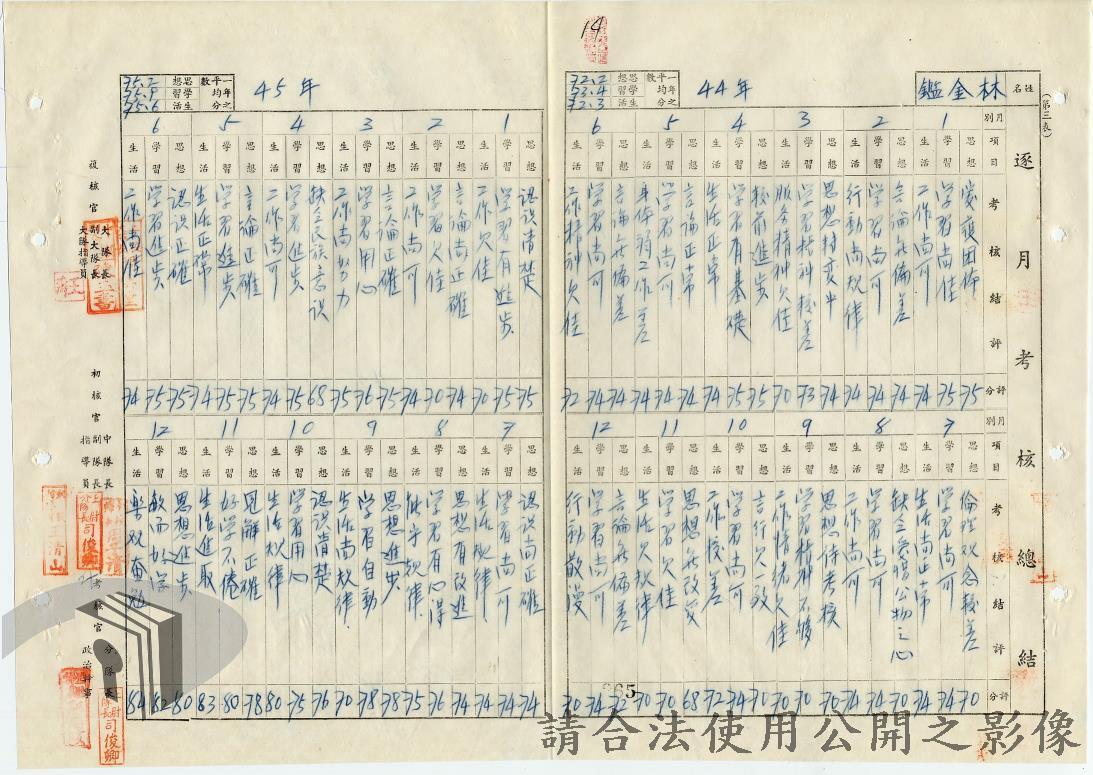 (第三表)
逐月考核總結
姓名 林金鑑
44年
一年之平均分數
思想 72.2
學習 73.4
生活 72.3
月別 項目 考核結評 評分
1
思想 愛護團体 75
學習 學習尚佳 75
生活 工作尚可 74
2
思想 言論無偏差 74
學習 學習尚可 74
生活 行動尚規律 74
3
思想 思想轉変中 74
學習 學習精神較差 73
生活 服務精神欠佳 70
4
思想 較前進步 75
學習 學習有基礎 75
生活 生活正常 74
5
思想 言論正常 74
學習 學習尚可 74
生活 身体弱工作差
6
思想 言論無偏差 74
學習 學習尚可 74
生活 工作精神欠佳 72
月別 項目 考核結評 評分
7
思想 倫理观念較差 70
學習 學習尚可 74
生活 生活尚正常 74
8
思想 缺乏愛惜公物之心 70
學習 學習尚可 74
生活 工作尚可 74
9
思想 思想待考核 70
學習 學習情緒不够 70
生活 言行欠一致 70
10
思想 工作較差
學習 學習尚佳 74
生活 72
11
思想 思想無改変 68
學習 學習欠佳 70
生活 生活欠規律 70
12
思想 言論無偏差 72
學習 學習尚可 74
生活 行動散漫 70
45年
一年之平均分數
思想 75.2
學習 75.5
生活 75.6
1
思想 認識清楚 75
學習 學習有進步 75
生活 工作欠佳 70
2
思想 言論尚正確 74
學習 學習欠佳 70
生活 工作尚可 74
3
思想 言論正確 75
學習 學習用心 76
生活 工作尚努力 75
4
思想 缺乏民族意识 68
學習 學習進步 75
生活 工作尚可 74
5
思想 言論正確 75
學習 學習進步 75
生活 生活正常 74
6
思想 認识正確 75
學習 學習進步 75
生活 工作尚佳 74
7
思想 認识尚正確 74
學習 學習尚可 74
生活 生活規律 74
8
思想 思想有改進 74
學習 學習有心得 76
生活 能守規律 75
9
思想 思想進步 78
學習 學習自動 78
生活 生活尚規律 70
10
思想 認識清楚 76
學習 學習用心 75
生活 生活規律 80
11
思想 見解正確 78
學習 好學不倦 80
生活 生活進取 83
12
思想 思想進步 80
學習 敏而好學 82
生活 樂观奮勉 84
複核官 大隊長 副大隊長 大隊指導員
初核官 中隊長 副隊長 指導員
考核官 分隊長 政治幹事
司俊卿
司俊卿
14
請合法使用公開之影像